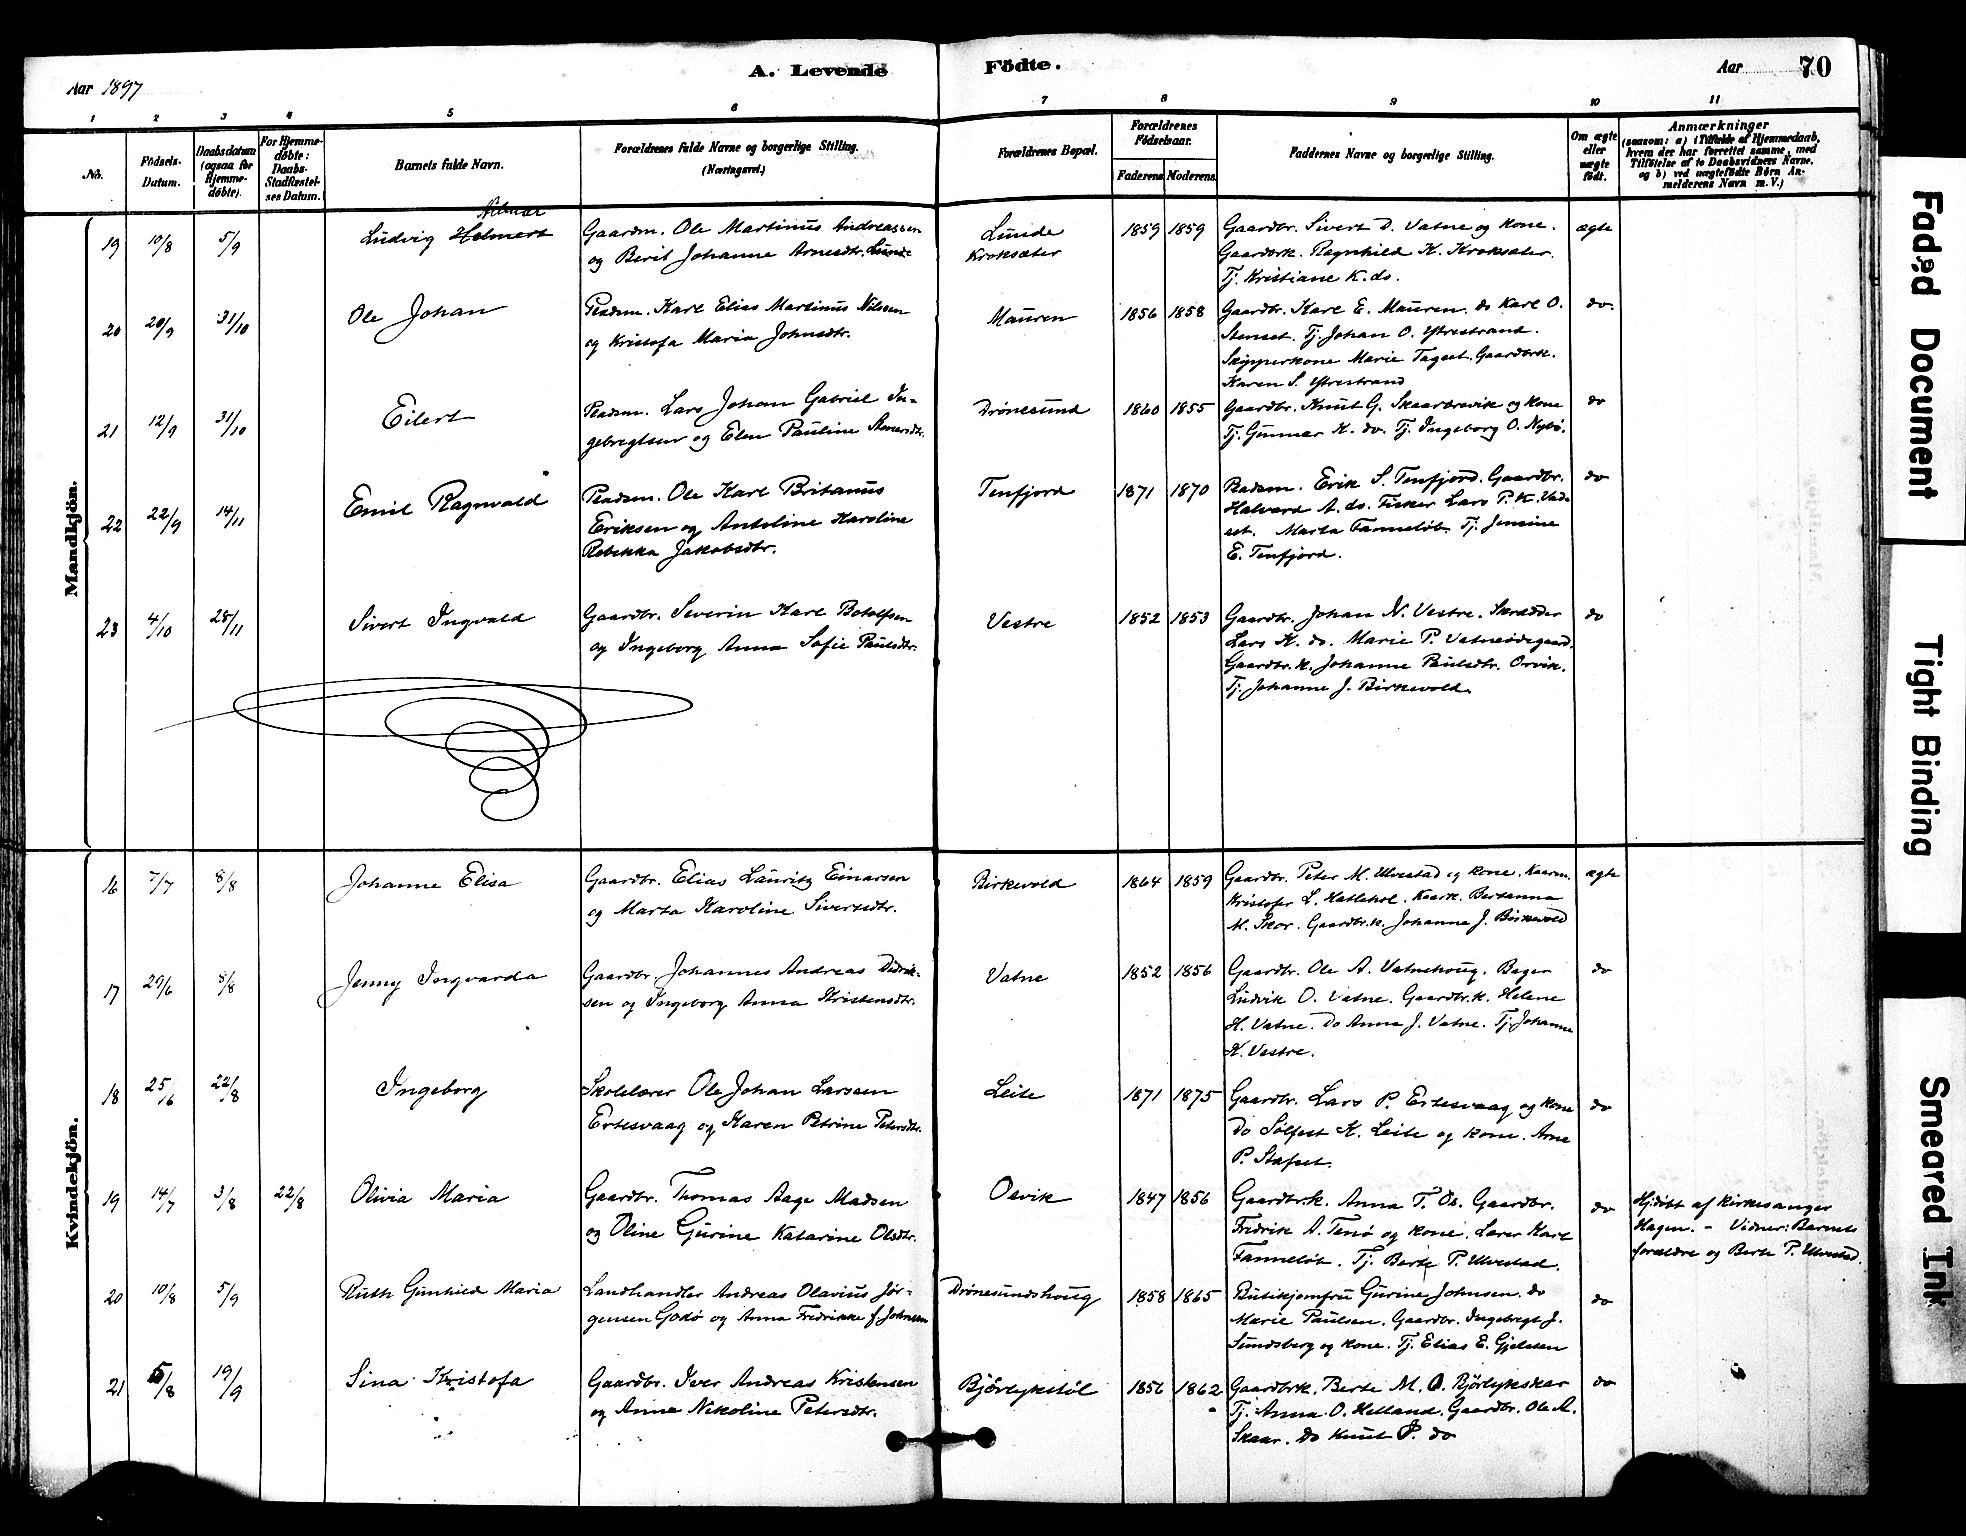 Aar 1897
A. Levende
Födte.
Aar
70
1 2 3 4 5 6 7 8 9 10 11
No.
Födsels-
Datum.
Daabsdatum
(ogsaa for
Hjemme-
döbte).
For Hjemme-
döbte:
Daabs-
Stadfæstel-
ses Datum.
Barnets fulde Navn.
Forældrenes fulde Navne og borgerlige Stilling.
(Næringsvei.)
Forældrenes Bopæl.
Forældrenes
Födselsaar.
Faderens.
Moderens.
Faddernes Navne og borgerlige Stilling.
Om ægte
eller
uægte
födt.
Anmærkninger
(saasom: a) i Tilfælde af Hjemmedaab,
hvem der har forrettet samme, med
Tilföielse af to Daabsvidners Navne,
og b) ved uægtefödte Börn An-
melderens Navn m. V.)
Mandkjön.
19 10/8 5/9
Hilmar
Ludvig Helmert
Gaardm. Ole Martinus Andreassen
og Berit Johanne Arnesdtr. Lunde
Lunde
Kroksæter
1859 1859
Gaardbr. Sivert D. Vatne og kone.
Gaardbrk. Ragnhild K. Kroksæter.
Tj. Kristiane K. do.
ægte
20 20/9 31/10
Ole Johan
Pladsm. Karl Elias Martinus Nilsen
og Kristofa Maria Johnsdtr.
Mauren
1856 1858
Gaardbr. Karl E. Mauren. do Karl O.
Stenset. Tj. Johan O. Ytrestrand.
Skipperkone Marie Tagset. Gaardbrk.
Karen S. Ytrestrand
do.
21 12/9 31/10
Eilert
Pladsm. Lars Johan Gabriel In-
gebregtsen og Elen Pauline
Drönesund
1860 1855
Gaardbr. Knut G. Skaarbrevik og kone
Tj. Gunnar K. do. Tj. Ingeborg O. Nybö.
do
22 22/9 14/11
Emil Ragnvald
Pladsm. Ole Karl Britanus
Eriksen og Antoline Karoline
Rebekka Jakobsdtr.
Tenfjord
1871 1870
Pladsm. Erik S. Tenfjord. Gaardbr.
Halvard A. do. Fisker Lars P. K. Vad-
set. Marta Tannelöb. Tj. Jensine
E. Tenfjord.
do
23 4/10 28/11
Sivert Ingvald
Gaardbr. Severin Karl Botolfsen
og Ingeborg Anna Sofie Paulsdtr.
Vestre
1852 1853
Gaardbr. Johan N. Vestre. Skrædder
Lars K. do. Marie P. Vatneödegaard.
Gaardbr.k. Johanne Paulsdtr. Orvik.
Tj. Johanne J. Birkevold.
do
Kvindekjön.
16 7/7 8/8
Johanne Elisa
Gaardbr. Elias Lauritz Einarsen
og Marta Karoline Sivertsdtr.
Birkevold
1864 1859
Gaardbr. Peter M. Ulvestad og kone. Kaarm.
Kristofer L. Hatlehol. Kaark. Bertanna
M. Skor. Gaardbr.k. Johanne J. Birkevold
ægte
17 29/6 8/8
Jenny Ingvarda
Gaardbr. Johannes Andreas Didrik-
sen og Ingeborg Anna Kristensdtr.
Vatne
1852 1856
Gaardbr. Ole A. Vatnehoug. Bager
Ludvik O. Vatne. Gaardbr.k. Helene
H. Vatne. Do Anna J. Vatne. Tj. Johanne
K. Vestre.
do
18 25/6 22/8
Ingeborg
Skolelærer Ole Johan Larssen
Ertesvaag og Karen Petrine Petersdtr.
Leite
1871 1875
Gaardbr. Lars P. Ertesvaag og kone
Do Sölfest K. Leite og kone. Arne
P. Stafset.
do
19 14/7 3/8 22/8
Olivia Maria
Gaardbr. Thomas Aage Madsen
og Oline Gurine Katarine Olsdtr.
Osvik
1847 1856
Gaardbr.k. Anna T. Os. Gaardbr.
Fredrik A. Tenö og kone. Lærer Karl
Tannelöb. Tj. Berte P. Ulvestad.
do
Hj.döbt af kirkesanger
Hagen. - Vidner: Barnets
forældre og Berte P. Ulvestad.
20 10/8 5/9
Ruth Gunhild Maria
Landhandler Andreas Olavius Jör-
gensen Godö og Anna Fredrikke f. Johnsen
Drönesundshoug
1858 1865
Butikjomfru Gurine Johnsen. do
Marie Paulsen. Gaardbr. Ingebregt J.
Sundsberg og kone. Tj. Elias E. Gjelsten
do
21 5/8 19/9
Sina Kristofa
Gaardbr. Iver Andreas Kristensen
og Anne Nikoline Petersdtr.
Björlykstöl
1856 1862
Gaardbrk. Berte M. O. Björlykskar
Tj. Anna O. Helland. Gaardbr. Ole A.
Skaar. Do Knut P. do
do
Faded Document
Tight Binding
Smeared Ink